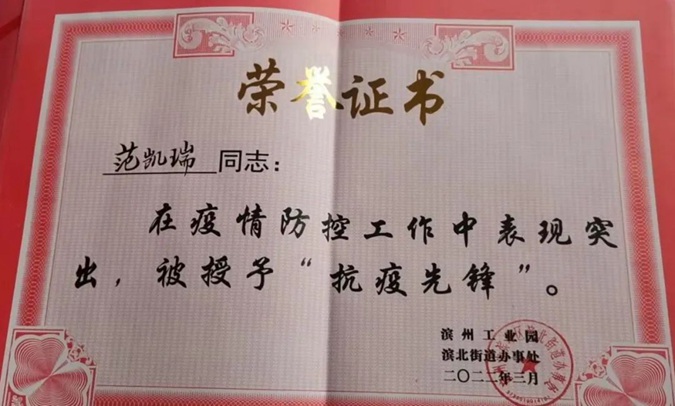 荣誉证书
范凯瑞 同志：
在疫情防控工作中表现突
出，被授予“抗疫先锋”。
滨州工业园
滨北街道办事处
二〇二二年三月